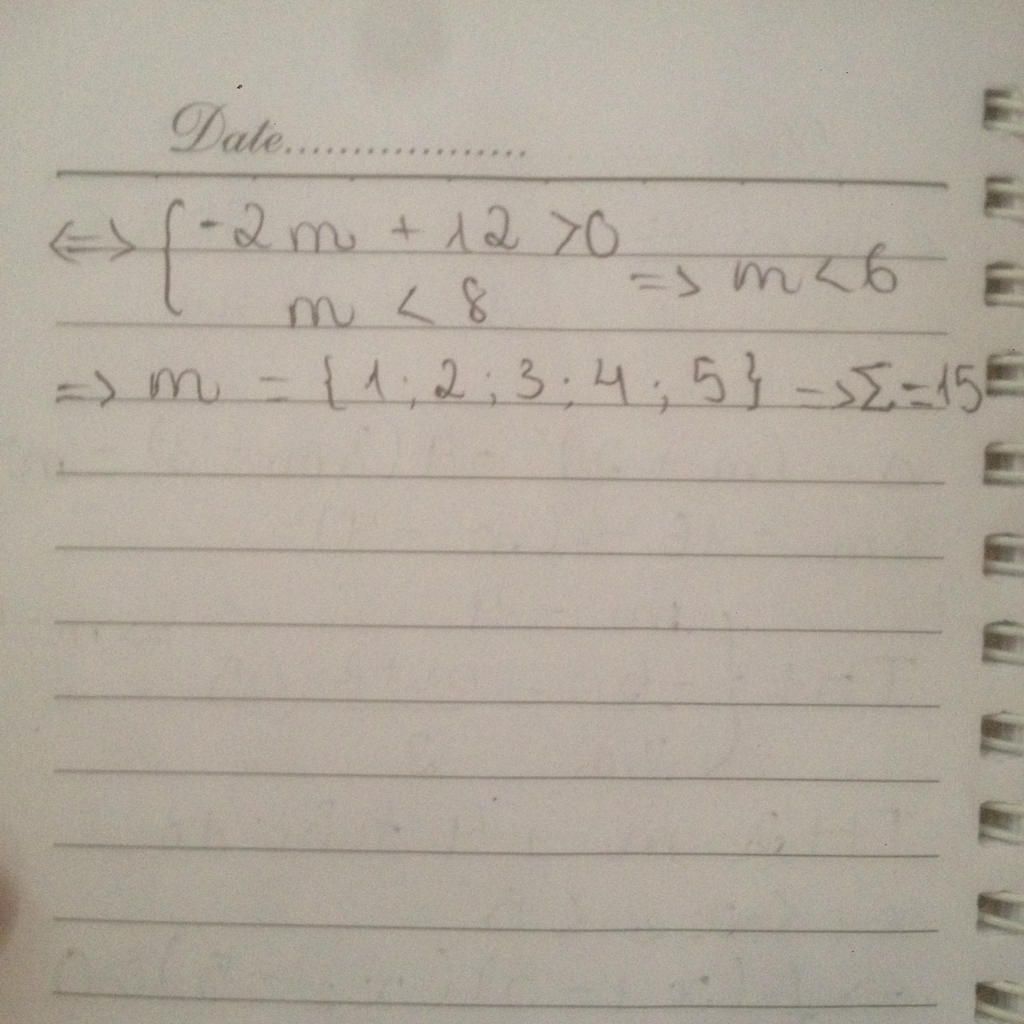 Date..................
⇔ { -2m + 12 > 0
m < 8
=> m < 6
=> m = {1; 2; 3; 4; 5} => Σ = 15